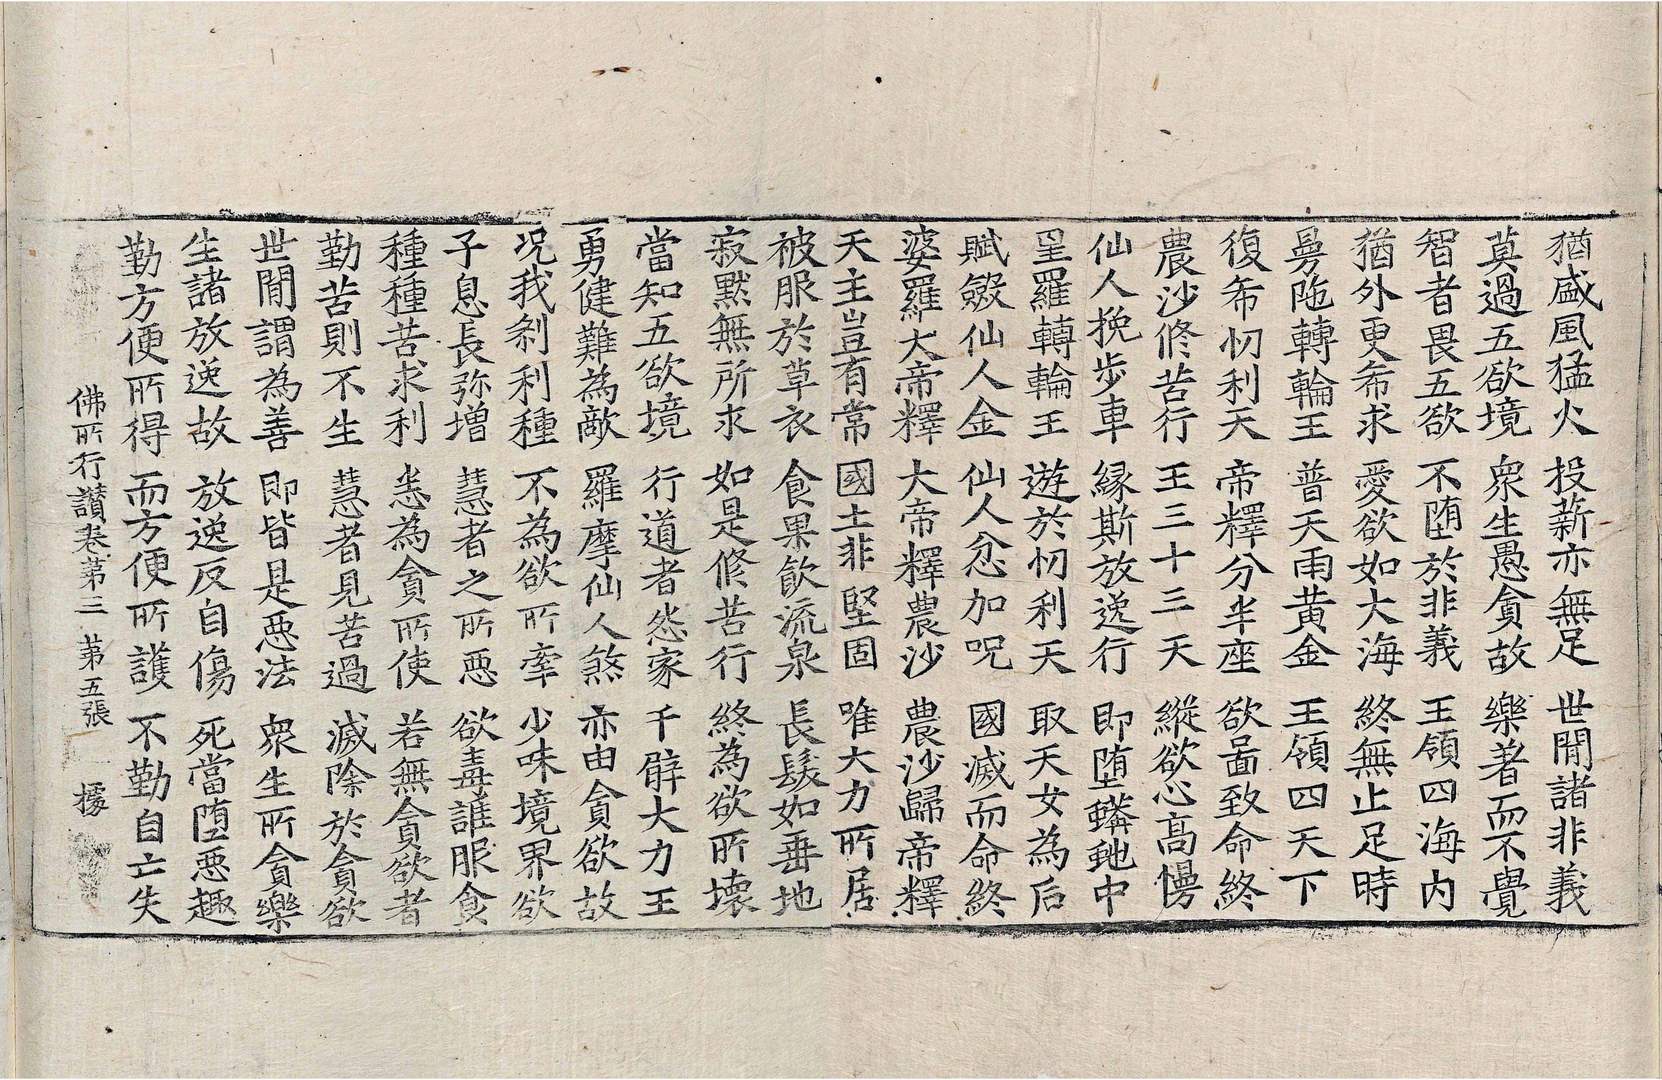 猶盛風猛火 投薪亦無足 世間諸非義
莫過五欲境 衆生愚貪故 樂著而不覺
智者畏五欲 不墮於非義 王領四海内
猶外更希求 愛欲如大海 終無止足時
㬅陁轉輪王 普天雨黄金 王領四天下
復希忉利天 帝釋分半座 欲啚致命終
農沙修苦行 王三十三天 縱欲心高慢
仙人挽步車 縁斯放逸行 即墮蟒虵中
㞷羅轉輪王 遊於忉利天 取天女為后
賦斂仙人金 仙人忿加呪 國滅而命終
婆羅大帝釋 大帝釋農沙 農沙歸帝釋
天主豈有常 國土非堅固 唯大力所居
被服於草衣 食果飲流泉 長髮如垂地
寂默無所求 如是修苦行 終為欲所壞
當知五欲境 行道者怨家 千臂大力王
勇健難為敵 羅摩仙人煞 亦由貪欲故
况我刹利種 不為欲所牽 少味境界欲
子息長弥增 慧者之所惡 欲毒誰服食
種種苦求利 悉為貪所使 若無貪欲者
勤苦則不生 慧者見苦過 滅除於貪欲
世間謂為善 即皆是惡法 衆生所貪樂
生諸放逸故 放逸反自傷 死當墮惡趣
勤方便所得 而方便所護 不勤自亡失
佛所行讃卷第三 第五張 據